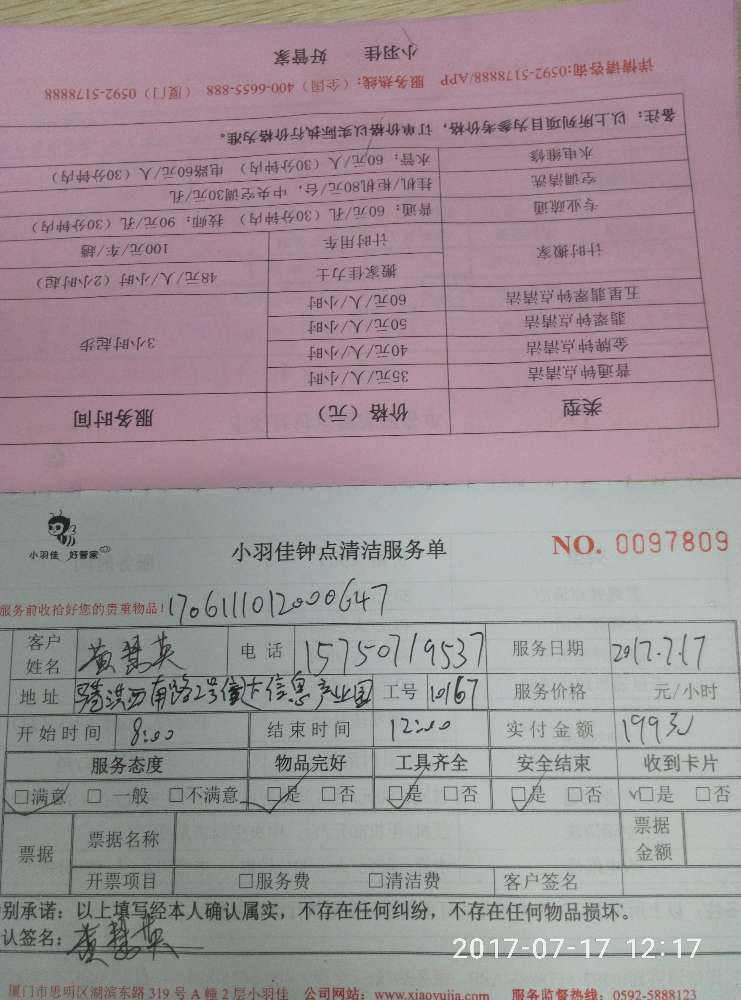 小羽佳 好管家
详情请咨询:0592-5178888/APP 服务热线:（全国）400-6655-888 （厦门）0592-5178888
备注：以上所列项目为参考价格，订单价格以实际执行价格为准。
水电维修 水管：60元/人（30分钟内） 电路60元/人（30分钟内）
空调清洗 挂机/柜机80元/台，中央空调30元/孔
专业疏通 普通：60元/孔（30分钟内） 技师：90元/孔（30分钟内）
计时搬家 计时用车 100元/车/趟
搬家佳力士 48元/人/小时（2小时起）
五星翡翠钟点清洁 60元/人/小时
翡翠钟点清洁 50元/人/小时 3小时起步
金牌钟点清洁 40元/人/小时
普通钟点清洁 35元/人/小时
类型 价格（元） 服务时间
小羽佳 好管家
小羽佳钟点清洁服务单 NO. 0097809
服务前收拾好您的贵重物品! 1706111012000647
客户姓名 黄慧英 电话 15750719537 服务日期 2017.7.17
地址 西南路2号信达信息产业园 工号 10167 服务价格 元/小时
开始时间 8:00 结束时间 12:00 实付金额 199元
服务态度 物品完好 工具齐全 安全结束 收到卡片
□满意 □一般 □不满意 □是 □否 □是 □否 □是 □否 □是 □否
票据 票据名称 票据金额
开票项目 □服务费 □清洁费 客户签名
别承诺：以上填写经本人确认属实，不存在任何纠纷，不存在任何物品损坏。
认签名：黄慧英
2017-07-17 12:17
厦门市思明区湖滨东路319号A幢2层小羽佳 公司网站：www.xiaoyujia.com 服务监督热线：0592-5888123